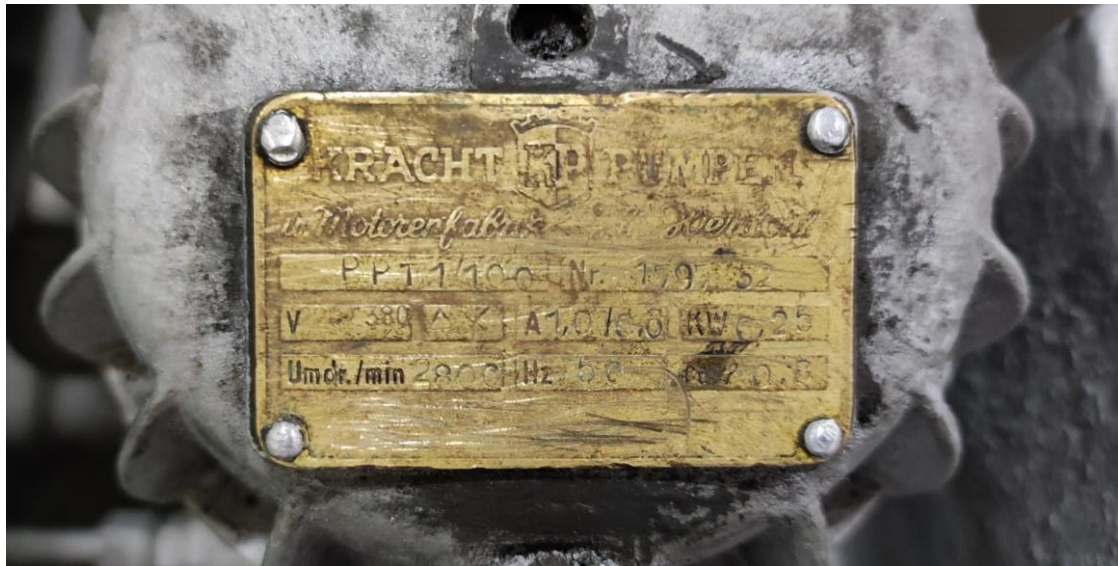 KRACHT KP PUMPEN
u. Motorenfabrik Werdohl
PPT 1/100 Nr.
V 380 A KW 0,25
Umdr./min 2800 Hz 50 cos φ 0,8